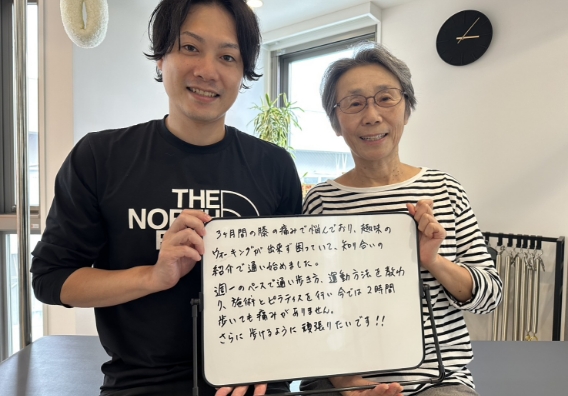 THE
NORTH
3ヶ月間の膝の痛みで悩んでおり、趣味の
ウォーキングが出来ず困っていて、知り合いの
紹介で通い始めました。
週一のペースで通い歩き方、運動方法を教わ
り、施術とピラティスを行い今では2時間
歩いても痛みがありません。
さらに歩けるように頑張りたいです!!